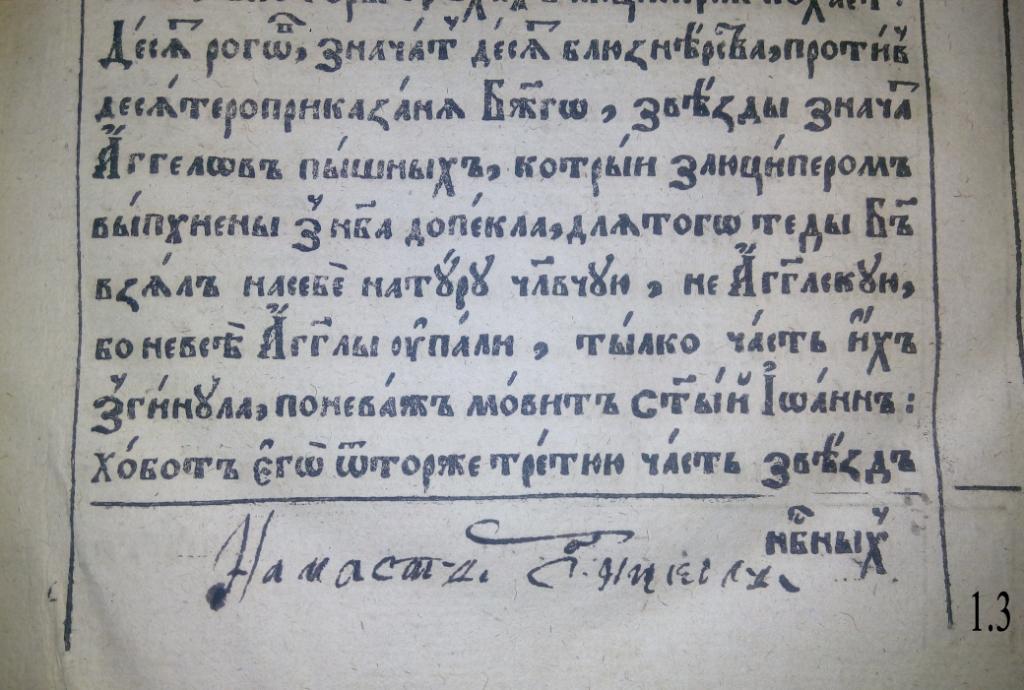 Десѧ́т рогѡ́в, знача́т де́сѧт блюзне́рства, проти́в
десѧ́тероприказа́нѧ Бж҃гѡ, звѣ́зды знача́т
А҆́ггелѡвъ пы́шных̾ъ, котры́и злюци́перомъ
вы́пхнены з̾ нб҃а допе́кла, длѧтогѡ теды Бг҃ъ
взѧ́лъ насебѐ нату́рꙋ члв҃чꙋю, не А҆́гг҃лскꙋю,
бо невсѣ̀ А҆́гг҃лы ᲂу҆па́ли, ты́лко ча́сть и҆́хъ
зги́нꙋла, понева́жъ мо́витъ ст҃ы́й І҆ѡа́ннъ:
хо́ботъ є҆гѡ̀ ѿторже третюю ча́сть звѣ́здъ
нб҃ных
1.3